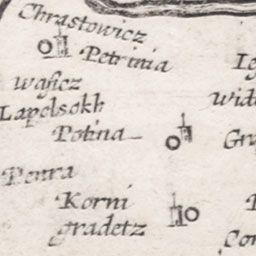 Chrastowicz
Petrinia
waſicz
Lapelsokh
Potina
Penra
Korni
gradetz